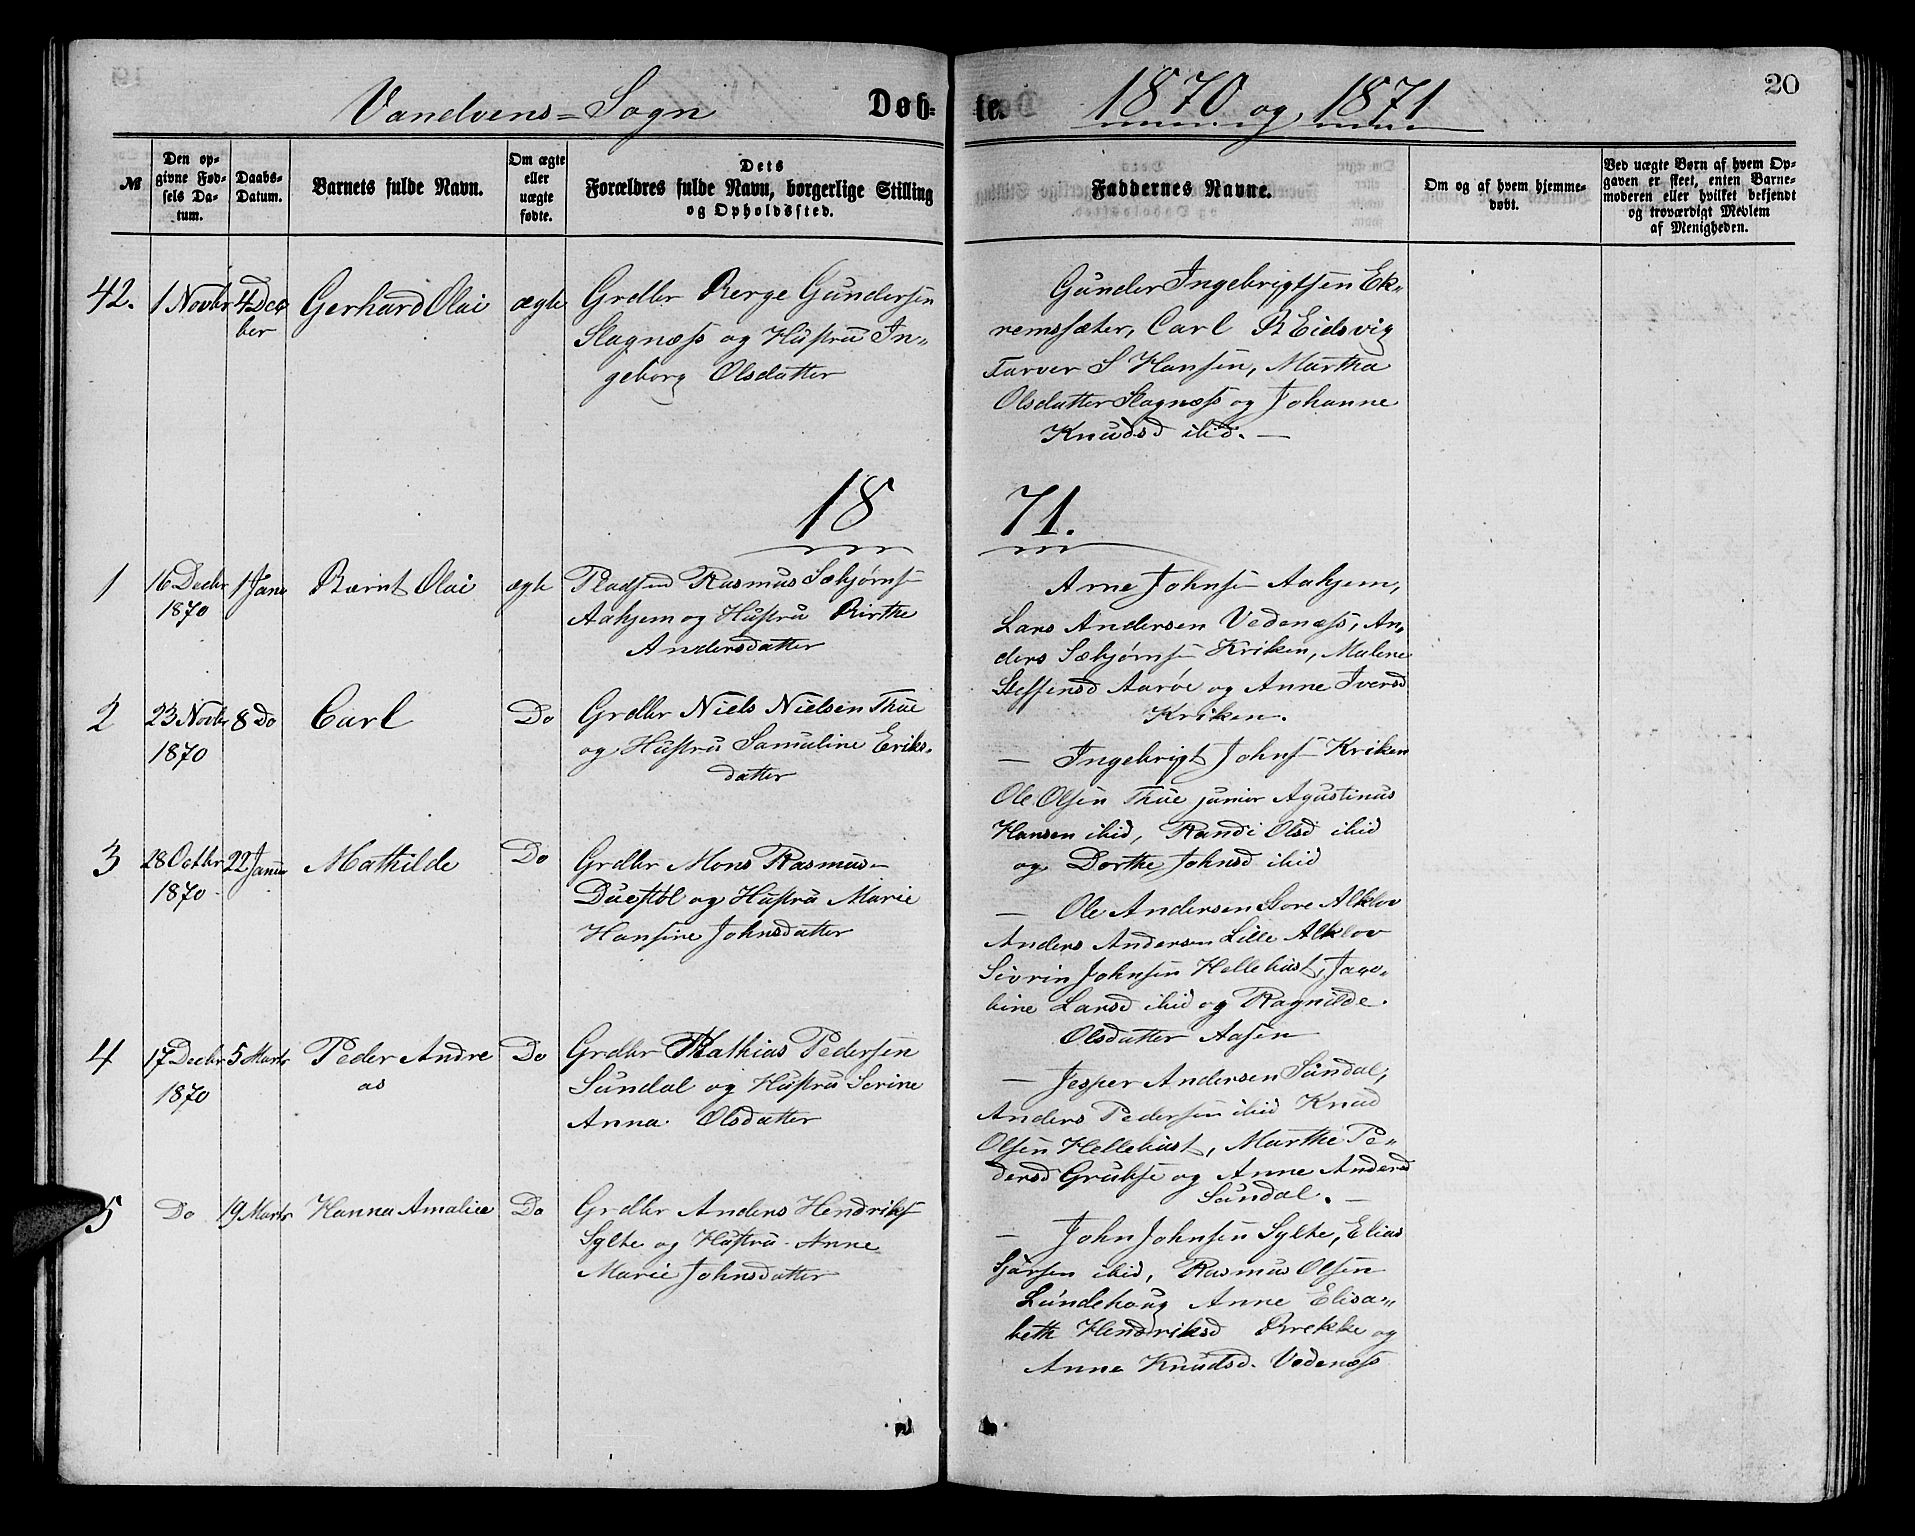 Vandvens= Sogn
Døb=
te.
1870 og 1871
20
№
Den op-
givne Fød-
sels Da-
tum.
Daabs-
Datum.
Barnets fulde Navn.
Om ægte
eller
uægte
fødte.
Dets
Forældres fulde Navn, borgerlige Stilling
og Opholdssted.
Faddernes Navne.
Om og af hvem hjemme-
døbt.
Ved uægte Børn af hvem Op-
gaven er skeet, enten Barne-
moderen eller hvilket bekjendt
og troværdigt Medlem
af Menigheden.
42.
1 Novbr
4 Dec
ber
Gerhard Olai
ægte
Grdbr Berge Gundersen
Slagnæss og Hustru In-
geborg Olsdatter
Gunder Ingebrigtsen Ek-
remssæter, Carl B Eidsvig
Farver S Hansen, Martha
Olsdatter Slagnæss og Johanne
Knudsd ibid. —
18
71.
1
16 Decbr
1870
1 Janu
Bernt Olai
ægte
Pladsm Rasmus Sæbjørns
Aahjem og Hustru Birthe
Andersdatter
Arne Johnsen Aahjem,
Lars Andersen Vedenæss, An-
ders Sæbjørns Kriken, Malene
Steffensd Aarøe og Anne Iversd
Kriken.
2
23 Novbr
1870
8 Do
Carl
Do
Grdbr Niels Nielsen Thue
og Hustru Samuline Eriks-
datter
— Ingebrigt Johns Kriken
Ole Olsen Thue junior Agustinus
Hansen ibid, Randi Olsd ibid
og Dorthe Johnsd ibid
3
28 Octbr
1870
22 Janu
Mathilde
Do
Grdbr Mons Rasmus-
Duestøl og Hustru Marie
Hansine Johnsdatter
— Ole Andersen Store Alklov
Anders Andersen Lille Alklov
Sivrin Johnsen Hellebust, Jaco-
bine Larsd ibid og Ragnilde
Olsdatter Aasen
4
17 Decbr
1870
5 Marts
Peder Andre
as
Do
Grdbr Mathias Pedersen
Sundal og Hustru Serine
Anna Olsdatter
— Jesper Andersen Sundal,
Anders Pedersen ibid Knud
Olsen Hellebust, Marthe Pe-
dersd Grubse og Anne Andersd
Sundal. —
5
Do
19 Marts
Hanna Amalie
Do
Grdbr Anders Hendriks
Sylte og Hustru Anne
Marie Johnsdatter
— John Johnsen Sylte, Elias
Sjursen ibid, Rasmus Olsen
Lundehoug Anne Elisa-
beth Hendriksd Brekke og
Anne Knudsd. Vedenæss